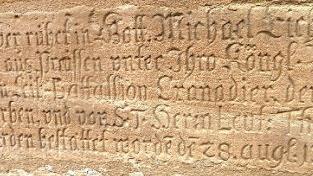 ver rübet in Gott. Michael Lich
aus Preussen unter Ihro Königl.
Battallion Granadier, der
rben, und von S.T. Herrn Leut.
rden bestattet worde de 28. augl. 1